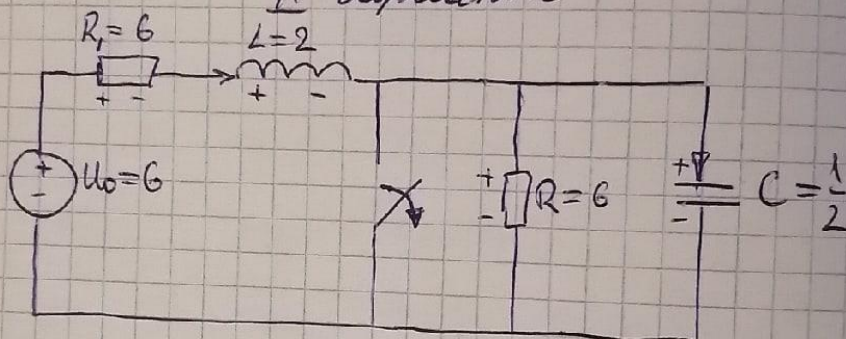 R₁=6 L=2
+ - + -
+
-
U₀=6
+
-
R=6
+
-
C=1/2